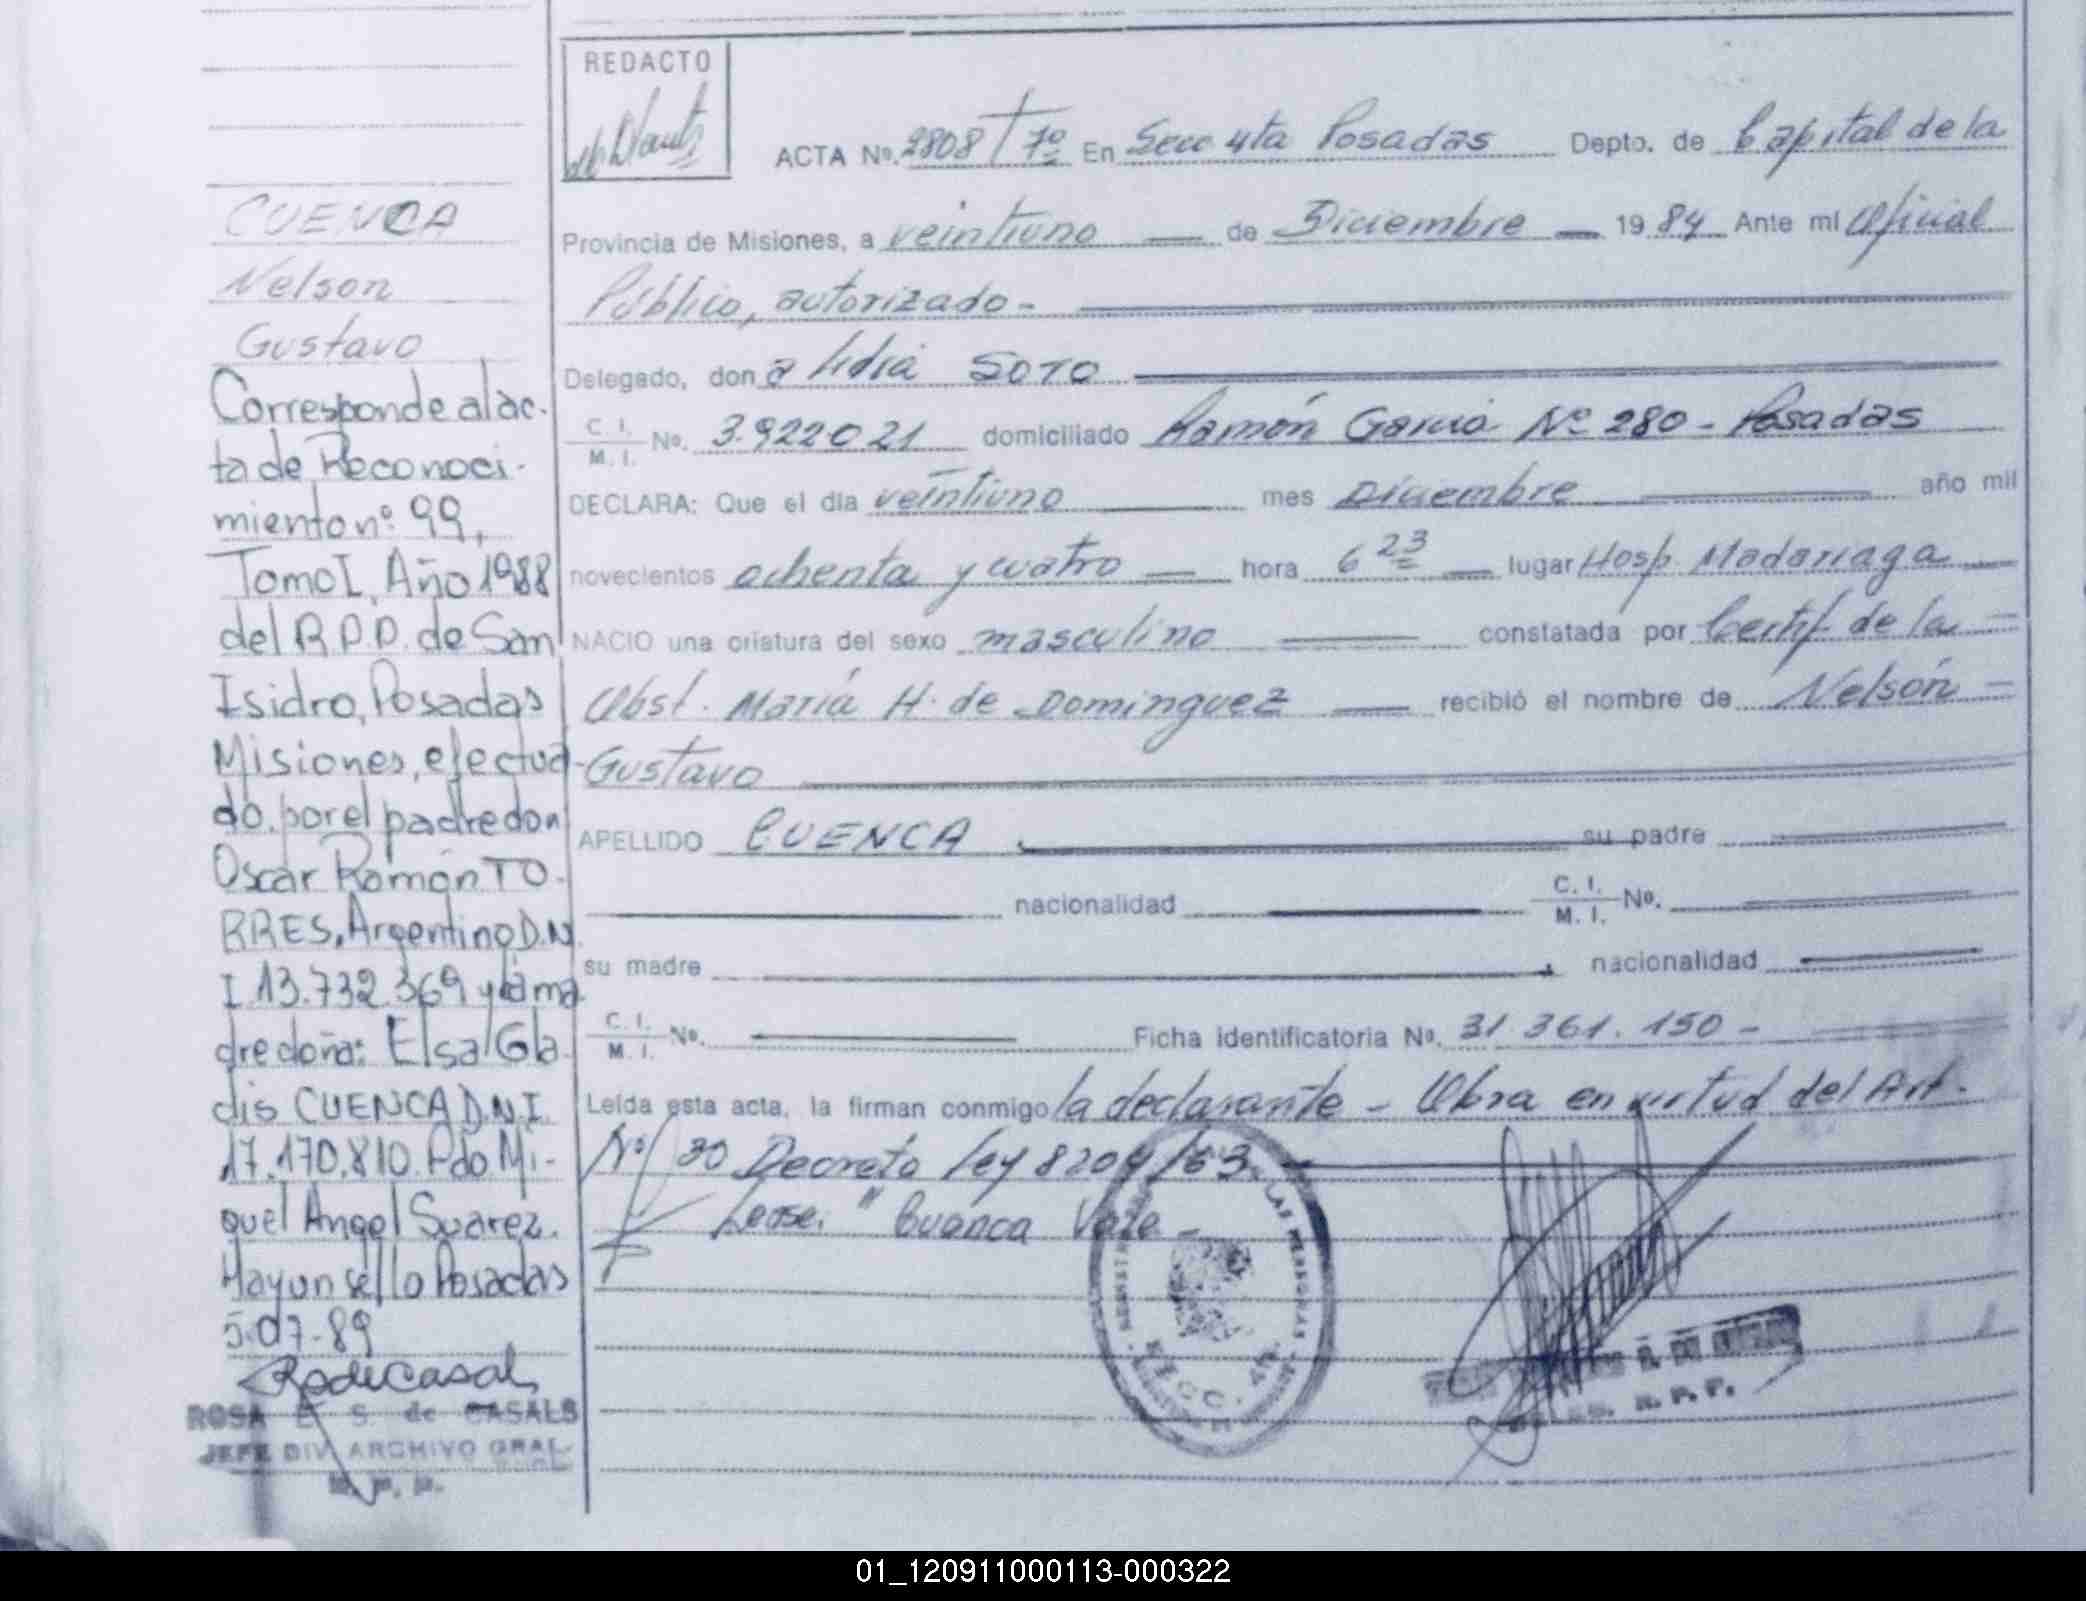 CUENCA
Nelson
Gustavo
Corresponde al ac-
ta de Reconoci-
miento nº 99,
Tomo I, Año 1988
del R.P.P. de San
Isidro, Posadas
Misiones, efectua-
do. por el padre don
Oscar Ramón TO-
RRES, Argentino D.N.
I 13.732.369 y la ma-
dre doña: Elsa Gla-
dis CUENCA D.N.I.
17.170.810. Pdo Mi-
guel Angel Suarez.
Hay un sello Posadas
5-07-89
ROSA E. S. de CASALS
JEFE DIV. ARCHIVO GRAL.
R. P. P.
REDACTO
ACTA Nº. 2808 Tº 7º En Secc 4ta Posadas Depto. de Capital de la
Provincia de Misiones, a veintiuno de Diciembre 1984 Ante mí Oficial
Público, autorizado-
Delegado, don a Lidia SOTO
C. I.
M. I. Nº. 3.922021 domiciliado Ramón Garcia Nº 280 - Posadas
DECLARA: Que el día veintiuno mes Diciembre año mil
novecientos ochenta y cuatro hora 6 23 lugar Hosp. Madariaga
NACIO una criatura del sexo masculino constatada por Certif. de la
Obst. María H. de Dominguez recibió el nombre de Nelson
Gustavo
APELLIDO CUENCA su padre
nacionalidad C. I.
M. I. Nº.
su madre nacionalidad
C. I.
M. I. Nº. Ficha identificatoria Nº. 31.361.150 -
Leída esta acta, la firman conmigo la declarante - Obra en virtud del Art.
Nº 30 Decreto ley 8204/63
Lease: "Cuenca Vale -
01_120911000113-000322